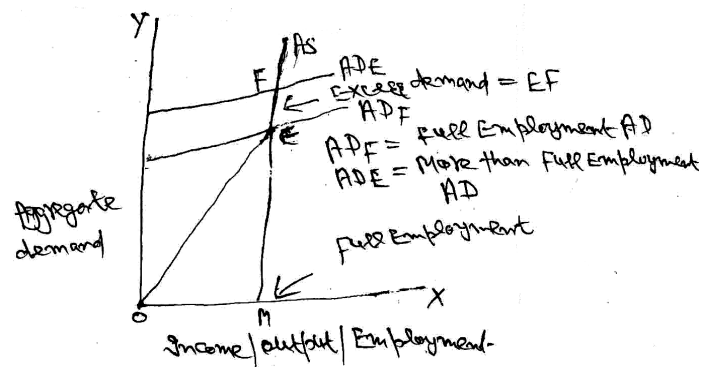 Y
AS
F
ADE
Excess demand = EF
ADF
E
ADF = Full Employment AD
ADE = More than Full Employment
AD
Aggregate
demand
Full Employment
O
M
X
Income/output/Employment.